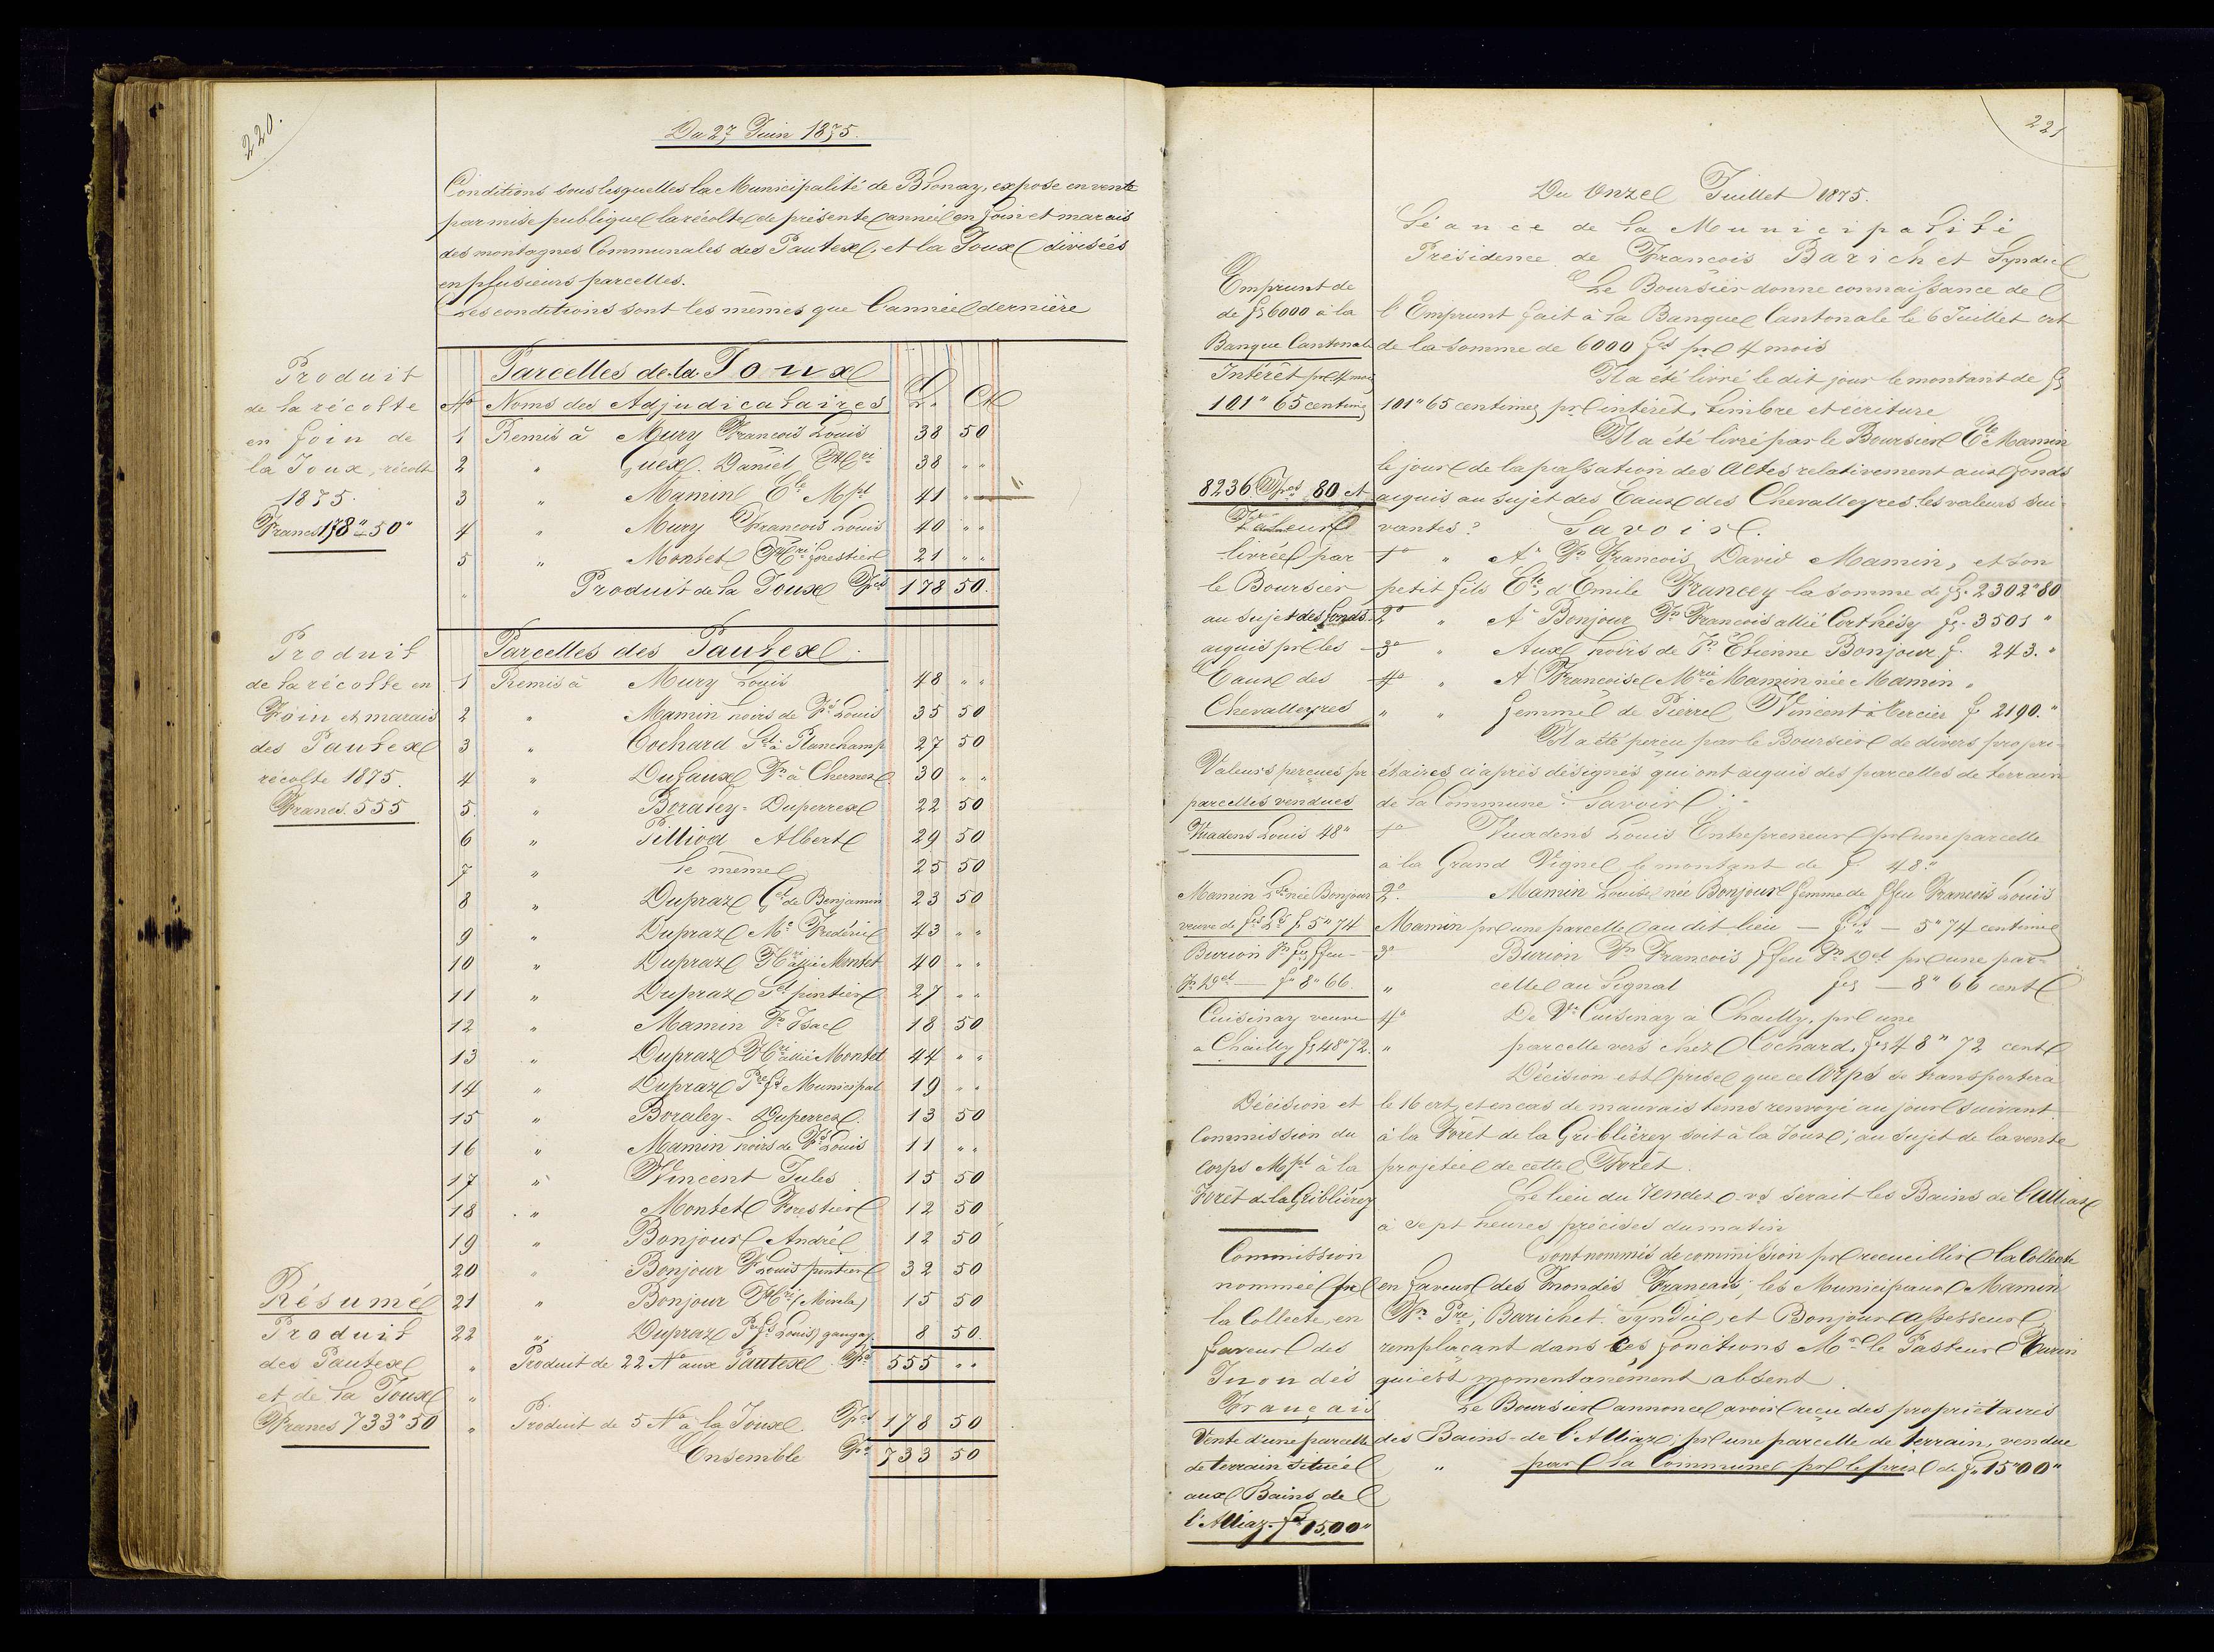 220.
Du 27 Juin 1875.
Conditions sous lesquelles la Municipalité de Blonay, expose en vente
par mise publique la récolte de présente année en foin et marais
des montagnes Communales des Pautex, et la Joux divisées
en plusieurs parcelles.
Les conditions sont les mêmes que l'année dernière
Produit
de la récolte
en foin de
la Joux, récolt
1875.
Francs 178" 50"
Parcelles de la Joux
No Noms des Adjudicataires
1 Remis à Mury François Louis 38 50
2 " Guex Daniel Hri 38 " "
3 " Mamin Ele Mpl 41 "
4 " Mury François Louis 40 " "
5 " Montet Hri forestier 21 " "
" Produit de la Joux Frs 178 50.
Produit
de la récolte en
Foin et marais
des Pautex
récolte 1875.
Francs. 555
Parcelles des Pautex.
1 Remis à Mury Louis 48 " "
2 " Mamin hoirs de Fs Louis 35 50
3 " Cochard à Planchamp 27 50
4 " Dufaux Fs à Chernex 30 " "
5. " Boraley-Duperrex 22 50
6 " Pilliod Albert 29 50
7 " Le même 25 50
8 " Dupraz Gel de Benjamin 23 50
9 " Dupraz Mc Frédéric 43 " "
10 " Dupraz Hri allié Montet 40 " "
11 " Dupraz pintier 27 " "
12 " Mamin Fs Isac 18 50
13 " Dupraz Hri allié Montet 44 " "
14 " Dupraz Pre fs Municipal 19 " "
15 " Boraley-Duperrex. 13 50
16 " Mamin hoirs de Fs Louis 11 " "
17 " Vincent Jules 15 50
18 " Montet Forestier 12 50
19 " Bonjour André 12 50
20 " Bonjour Fs Louis pintier 32 50
21 " Bonjour Hri 15 50
22 " Dupraz Pre fs Louis 8 50.
" Produit de 22 Nos aux Pautex Frs 555 " "
Résumé
Produit
des Pautex
et de la Joux
Francs 733" 50
" Produit de 5 Nos à la Joux Frs 178 50
Ensemble Frs 733 50
221
Du Onze Juillet 1875.
Séance de la Municipalité
Présidence de François Barichet Syndic
Emprunt de
de fs 6000 à la
Banque Cantonale
Intérêt pr 4 mois
101" 65 centimes
Le Boursier donne connaissance de
l'Emprunt fait à la Banque Cantonale le 6 Juillet crt
de la somme de 6000 frs pr 4 mois
Il a été livré le dit jour le montant de fs
101" 65 centimes pr intérêt, timbre et écriture
Il a été livré par le Boursier Ele Mamin
le jour de la passation des Actes relativement aux fonds
aiquis au sujet des Eaux des Chevalleyres. les valeurs sui-
vantes? Savoir.
8236 Frs 80 ct
Valeur
livrée par
le Boursier
au sujet des fonds
aiquis pr les
Eaux des
Chevalleyres
1o " A Jn François David Mamin, et son
petit fils Ele, d'Emile Francey la somme de fs. 2302" 80
2o " A Bonjour Jn François allié Corthésy fs. 3501 "
3o " Aux hoirs de Jn Etienne Bonjour f. 243. "
4o " A Françoise Mrie Mamin née Mamin "
" " femme de Pierre Vincent à Mercier f 2190. "
Il a été perçu par le Boursier de divers propri-
étaires ci après désignés qui ont aiquis des parcelles de terrain
de la Commune. Savoir.
Valeurs perçues pr
parcelles vendues
Vuadens Louis 48"
1o Vuadens Louis Entrepreneur pr une parcelle
à la Grand Vigne le montant de f. 48."
Mamin Lse née Bonjour
veuve de fçs Ls f. 5" 74
2o. Mamin Louise née Bonjour femme de ffeu François Louis
Mamin pr une parcelle au dit lieu — frs — 5" 74 centimes
Burion Jn fçs ffeu
Jn Dd — fs 8" 66
3o Burion Jn François ffeu Jn Dd pr une par-
" celle au Signal frs — 8" 66 cent
Cuisinay veuve
a Chailly fs 48" 72.
4o De Ve Cuisinay à Chailly, pr une
" parcelle vers chez Cochard. frs 48" 72 cent
Décision est prise que ce Corps se transportera
le 16 crt, et en cas de mauvais tems renvoyé au jour suivant
à la Forêt de la Gribliérey soit à la Joux; au sujet de la vente
projetée de cette Forêt.
Décision et
Commission du
Corps Mpl à la
Forêt de la Gribliérey
Le lieu du rendez-vs serait les Bains de l'Alliaz
à sept heures précises du matin
Commission
nommée pr
la Collecte, en
faveur des
Inondés
Français
Sont nommés de commission pr recueillir la Collecte
en faveur des Inondés Français; les Municipaux Mamin
Jn Pre; Barichet Syndic, et Bonjour assesseur
remplaçant dans ces fonctions Mr le Pasteur
qui est momentanément absent
Le Boursier annonce avoir reçu des propriétaires
des Bains de l'Alliaz; pr une parcelle de terrain, vendue
" par la Commune pr le prix de fs 1500"
Vente d'une parcelle
de terrain située
aux Bains de
l'Alliaz. frs 1500"